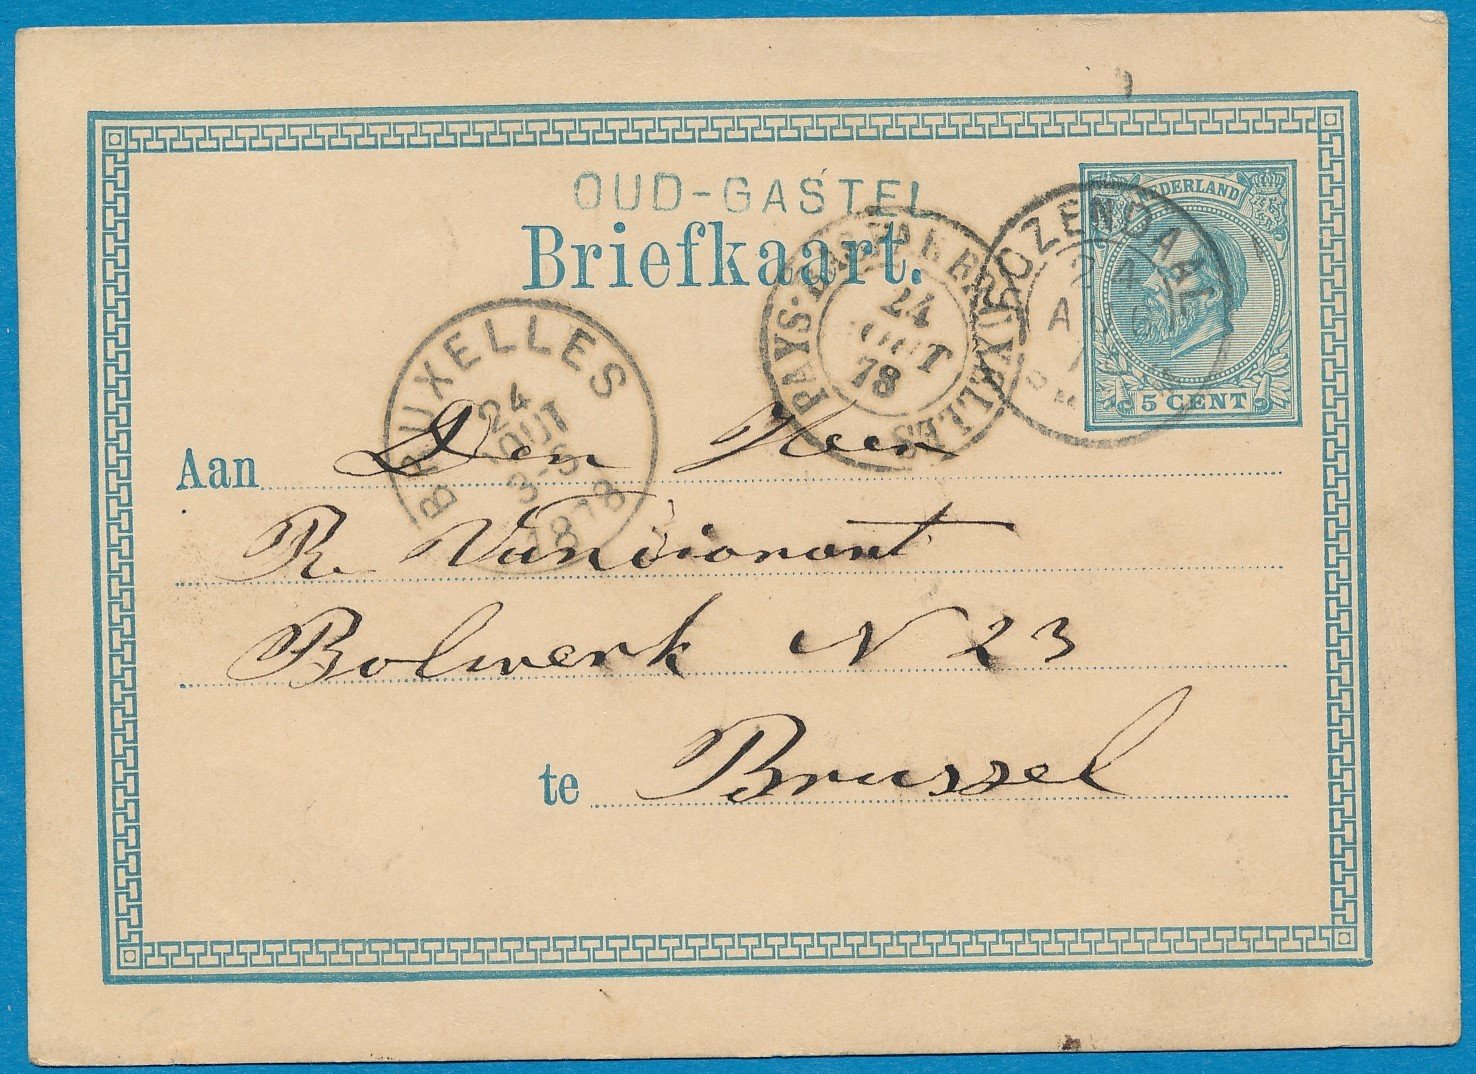 OUD-GASTEL
Briefkaart.
NEDERLAND
5 CENT
ROZENDAAL
24
PAYS-BAS PAR BRUXELLES
24
AOUT
78
BRUXELLES
24
AOUT
3-S
1878
Aan Den Heer
R.
Bolwerk N 23
te Brussel